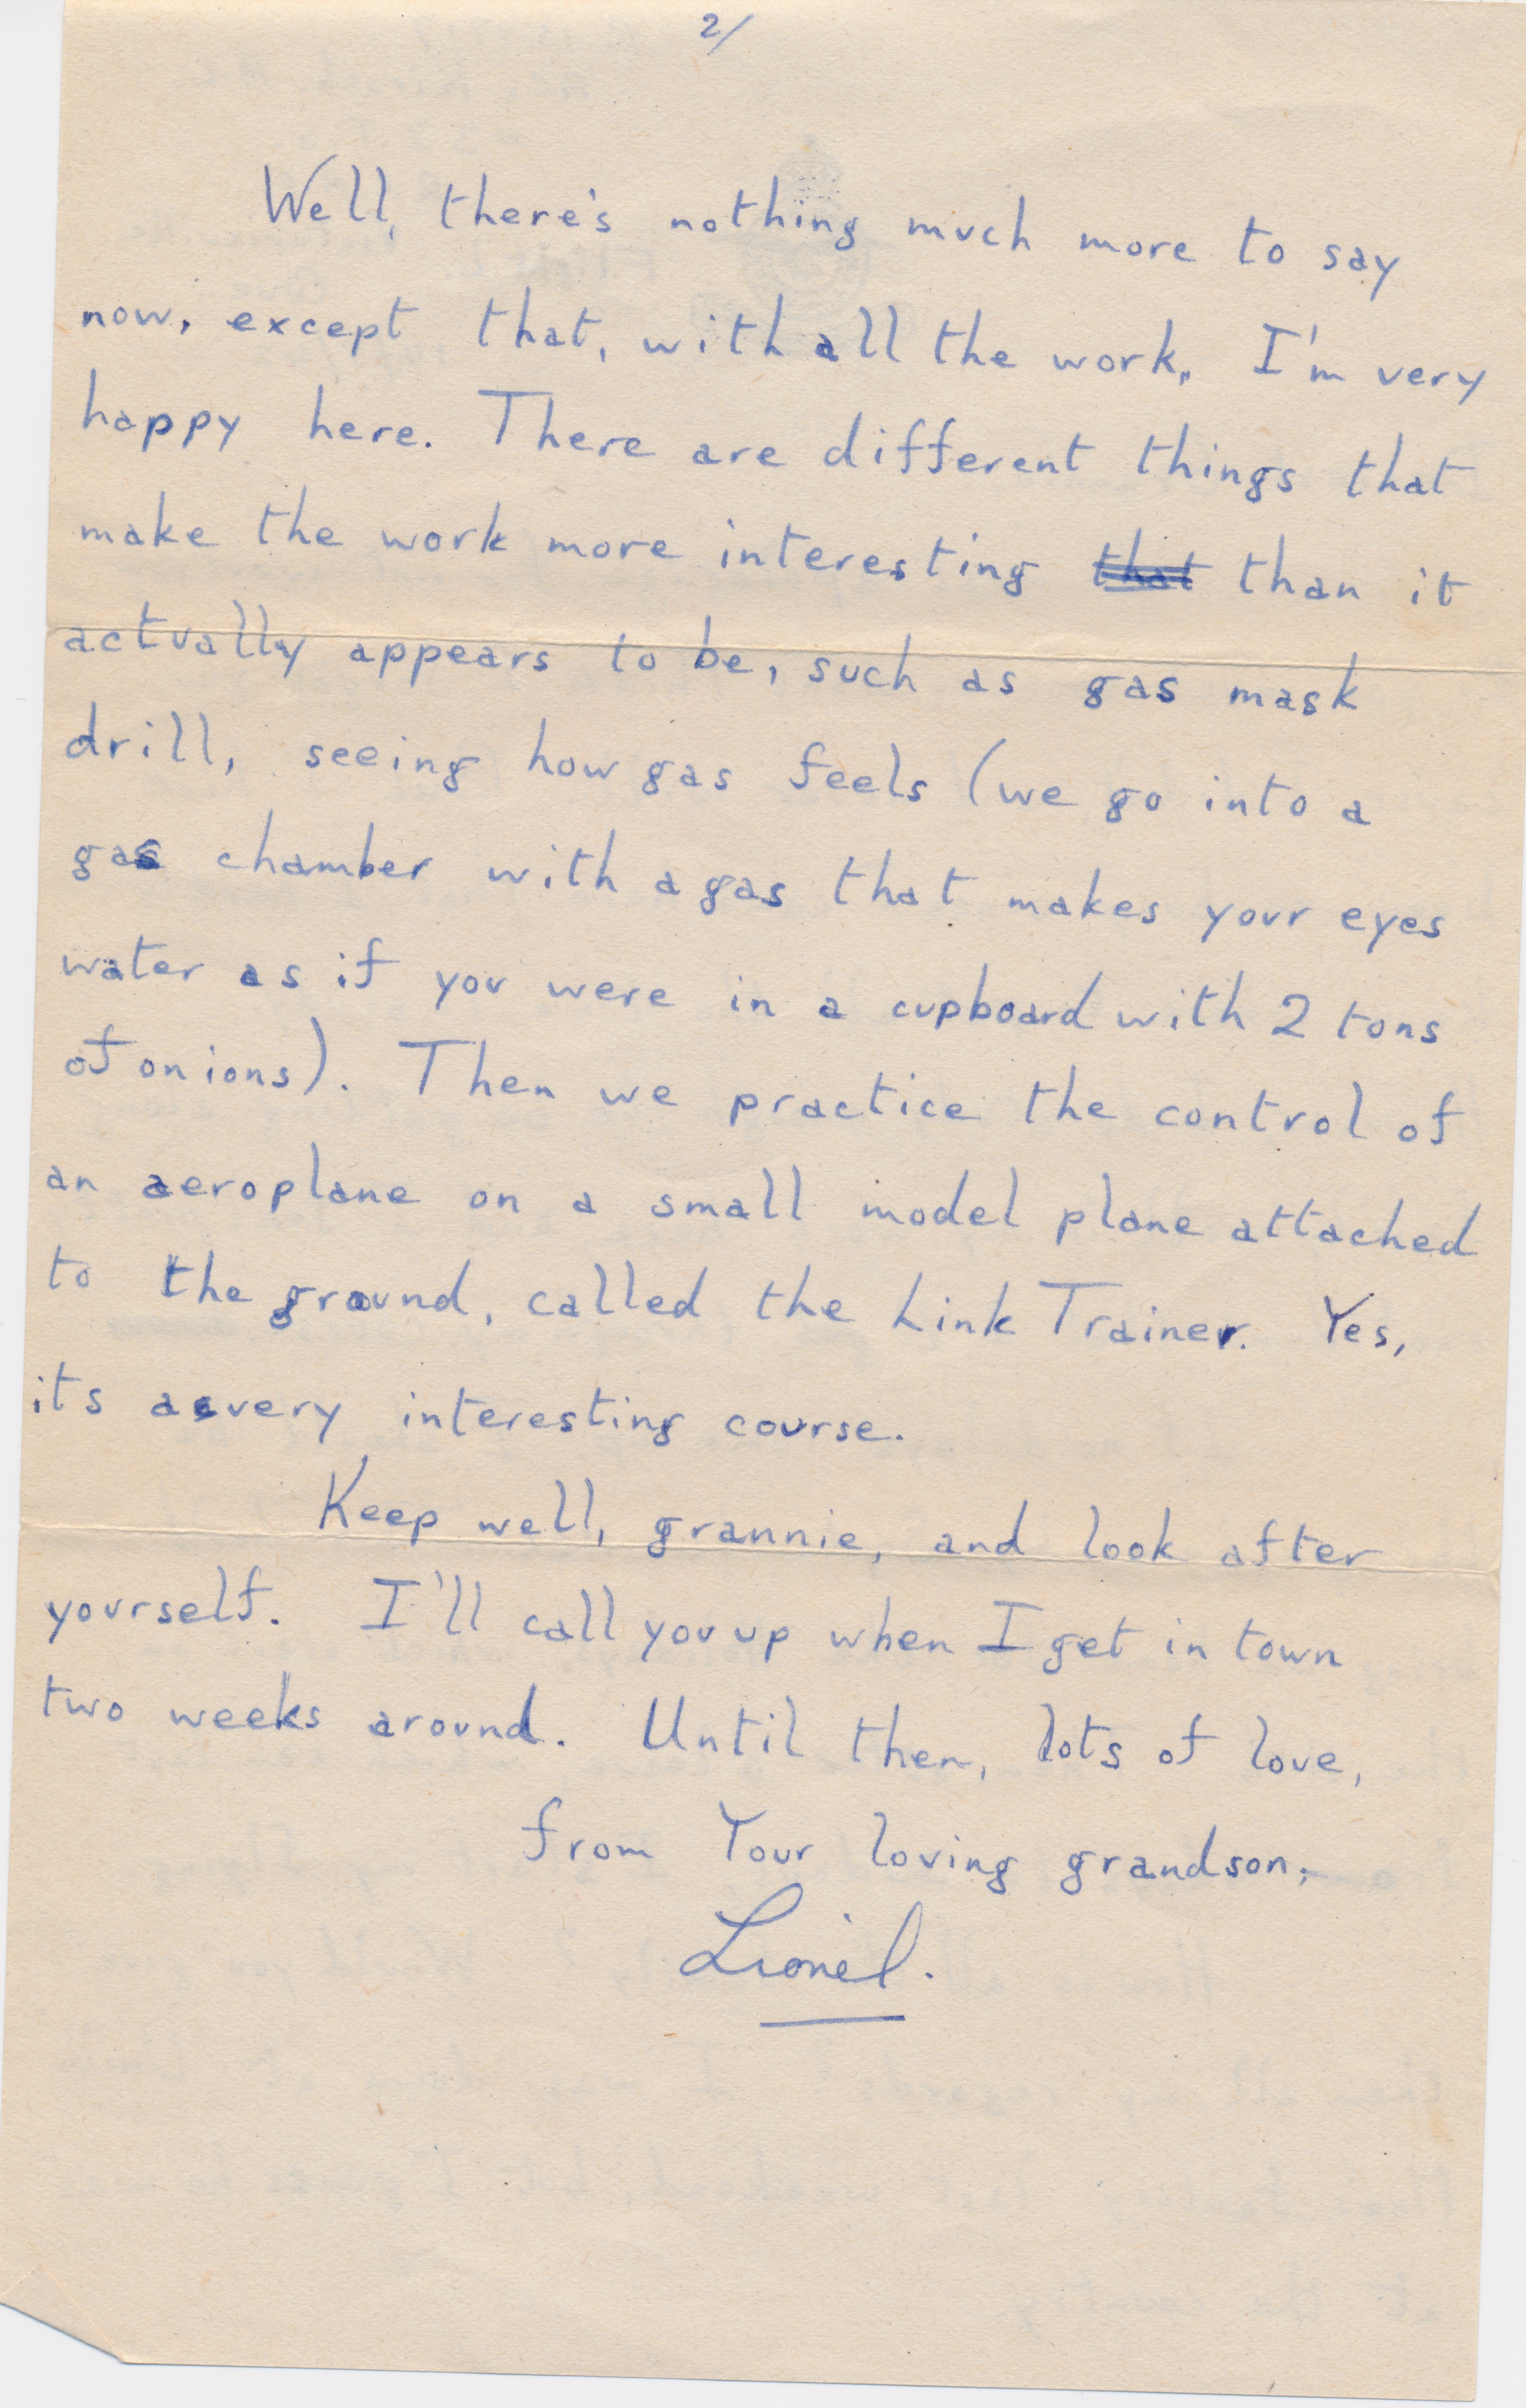 2/
Well, there's nothing much more to say
now, except that, with all the work, I'm very
happy here. There are different things that
make the work more interesting that than it
actually appears to be, such as gas mask
drill, seeing how gas feels (we go into a
gas chamber with a gas that makes your eyes
water as if you were in a cupboard with 2 tons
of onions). Then we practice the control of
an aeroplane on a small model plane attached
to the ground, called the Link Trainer. Yes,
its a very interesting course.
Keep well, grannie, and look after
yourself. I'll call you up when I get in town
two weeks around. Until then, lots of love,
from Your loving grandson,
Lionel.